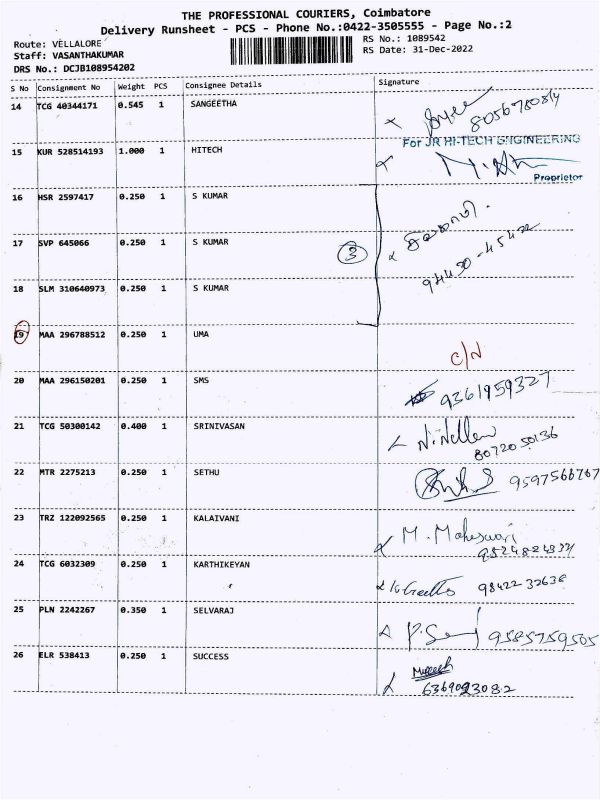 THE PROFESSIONAL COURIERS, Coimbatore
Delivery Runsheet - PCS - Phone No.:0422-3505555 - Page No.:2
Route: VELLALORE
RS No.: 1089542
Staff: VASANTHAKUMAR
RS Date: 31-Dec-2022
DRS No.: DCJB108954202
S No Consignment No Weight PCS Consignee Details Signature
14 TCG 40344171 0.545 1 SANGEETHA
For JR HI-TECH ENGINEERING
15 KUR 528514193 1.000 1 HITECH
Proprietor
16 HSR 2597417 0.250 1 S KUMAR
17 SVP 645066 0.250 1 S KUMAR 3
94430-45422
18 SLM 310640973 0.250 1 S KUMAR
19 MAA 296788512 0.250 1 UMA
C/N
20 MAA 296150201 0.250 1 SMS 9361959327
21 TCG 50300142 0.400 1 SRINIVASAN
8072050136
22 MTR 2275213 0.250 1 SETHU 9597566767
23 TRZ 122092565 0.250 1 KALAIVANI M. Maheswari
24 TCG 6032309 0.250 1 KARTHIKEYAN K Geetha 98422 32638
25 PLN 2242267 0.350 1 SELVARAJ 9585759505
26 ELR 538413 0.250 1 SUCCESS
6369093082